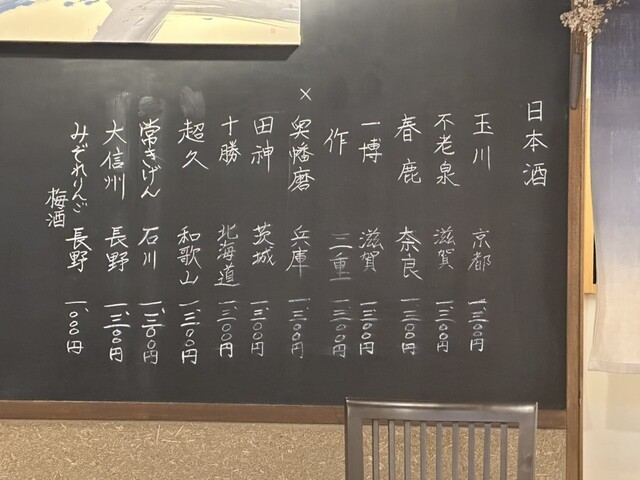 日本酒
玉川 京都 一、三〇〇円
不老泉 滋賀 一、三〇〇円
春鹿 奈良 一、三〇〇円
一博 滋賀 一、三〇〇円
作 三重 一、三〇〇円
× 奥幡磨 兵庫 一、三〇〇円
田神 茨城 一、三〇〇円
十勝 北海道 一、三〇〇円
超久 和歌山 一、三〇〇円
常きげん 石川 一、三〇〇円
大信州 長野 一、三〇〇円
みぞれりんご梅酒 長野 一、〇〇〇円